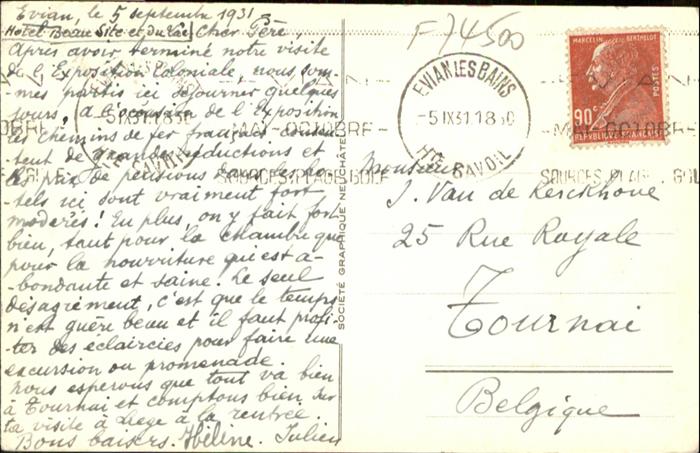 Evian, le 5 septembre 1931
Hôtel Beau Site et du Lac Cher Père,
Après avoir terminé notre visite
de l'Exposition Coloniale, nous som-
mes partis ici séjourner quelques
jours, à l'occasion de l'Exposition
les chemins de fer français
tent de grandes réductions et
les prix de pensions dans les hô-
tels ici sont vraiment fort
modérés! En plus, on y fait fort
bien, tant pour la chambre que
pour la nourriture qui est a-
bondante et saine. Le seul
désagrément, c'est que le temps
n'est guère beau et il faut profi-
ter des éclaircies pour faire une
excursion ou promenade.
Nous espérons que tout va bien
à Tournai et comptons bien sur
ta visite à Liège à la rentrée.
Bons baisers. Hélène. Julien
SOCIÉTÉ GRAPHIQUE NEUCHÂTEL
F 74500
EVIAN LES BAINS
-5 IX 31 18 50
HTE SAVOIE
MAI-OCTOBRE
SOURCES, PLAGE, GOLF
MARCELIN BERTHELOT
90c
POSTES
REPUBLIQUE FRANÇAISE
Monsieur
J. Van de Kerckhove
25 Rue Royale
Tournai
Belgique